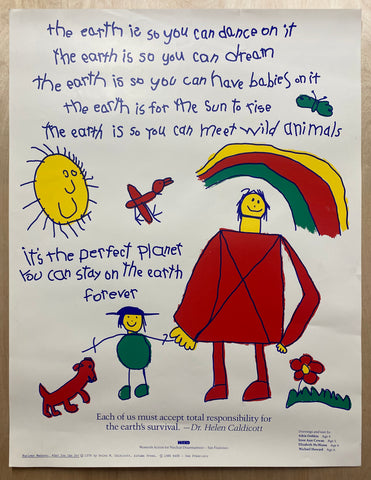 the earth is so you can dance on it
the earth is so you can dream
the earth is so you can have babies on it
the earth is for the sun to rise
the earth is so you can meet wild animals
it's the perfect planet
you can stay on the earth
forever
Each of us must accept total responsibility for
the earth's survival. —Dr. Helen Caldicott
Women's Action for Nuclear Disarmament · San Francisco
Drawings and text by:
Age 4
Age 5
Michael Howard Age 6